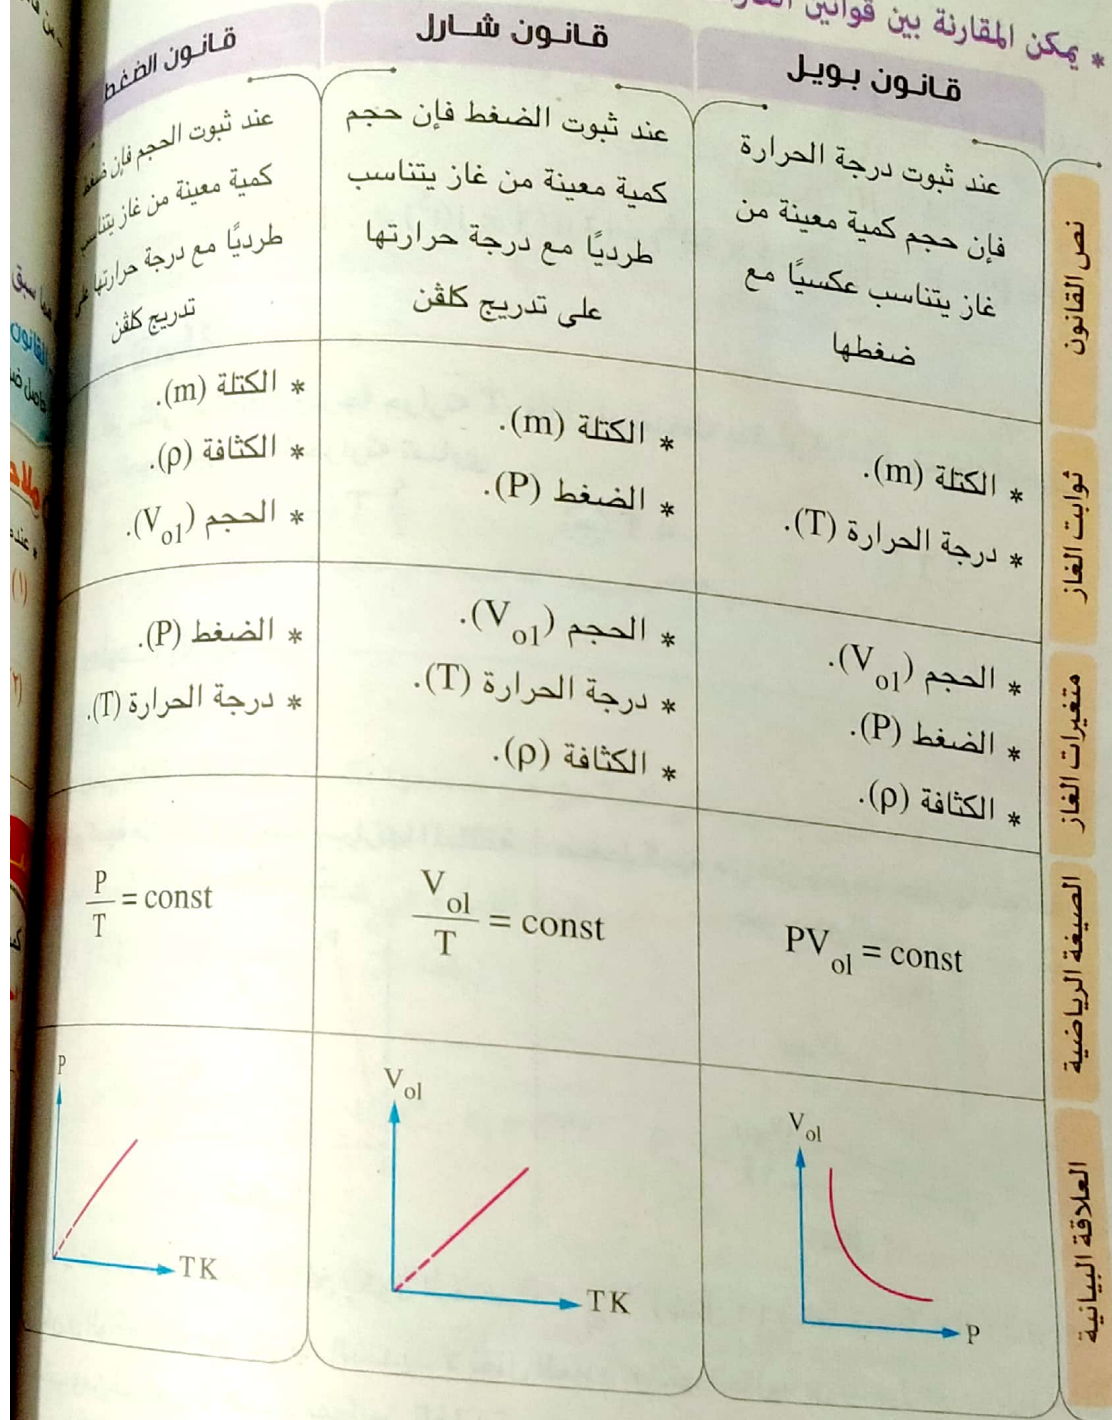 * يمكن المقارنة بين قوانين
قانون بويل
قانون شارل
قانون الضغط
نص القانون
عند ثبوت درجة الحرارة
فإن حجم كمية معينة من
غاز يتناسب عكسيًا مع
ضغطها
عند ثبوت الضغط فإن حجم
كمية معينة من غاز يتناسب
طرديًا مع درجة حرارتها
على تدريج كلڤن
عند ثبوت الحجم فإن ضغط
كمية معينة من غاز يتناسب
طرديًا مع درجة حرارتها على
تدريج كلڤن
ثوابت الغاز
* الكتلة (m).
* درجة الحرارة (T).
* الكتلة (m).
* الضغط (P).
* الكتلة (m).
* الكثافة (ρ).
* الحجم (Vol).
متغيرات الغاز
* الحجم (Vol).
* الضغط (P).
* الكثافة (ρ).
* الحجم (Vol).
* درجة الحرارة (T).
* الكثافة (ρ).
* الضغط (P).
* درجة الحرارة (T).
الصيغة الرياضية
PVol = const
Vol/T = const
P/T = const
العلاقة البيانية
Vol
P
Vol
TK
P
TK
سبق
القانون
(١)
(٢)